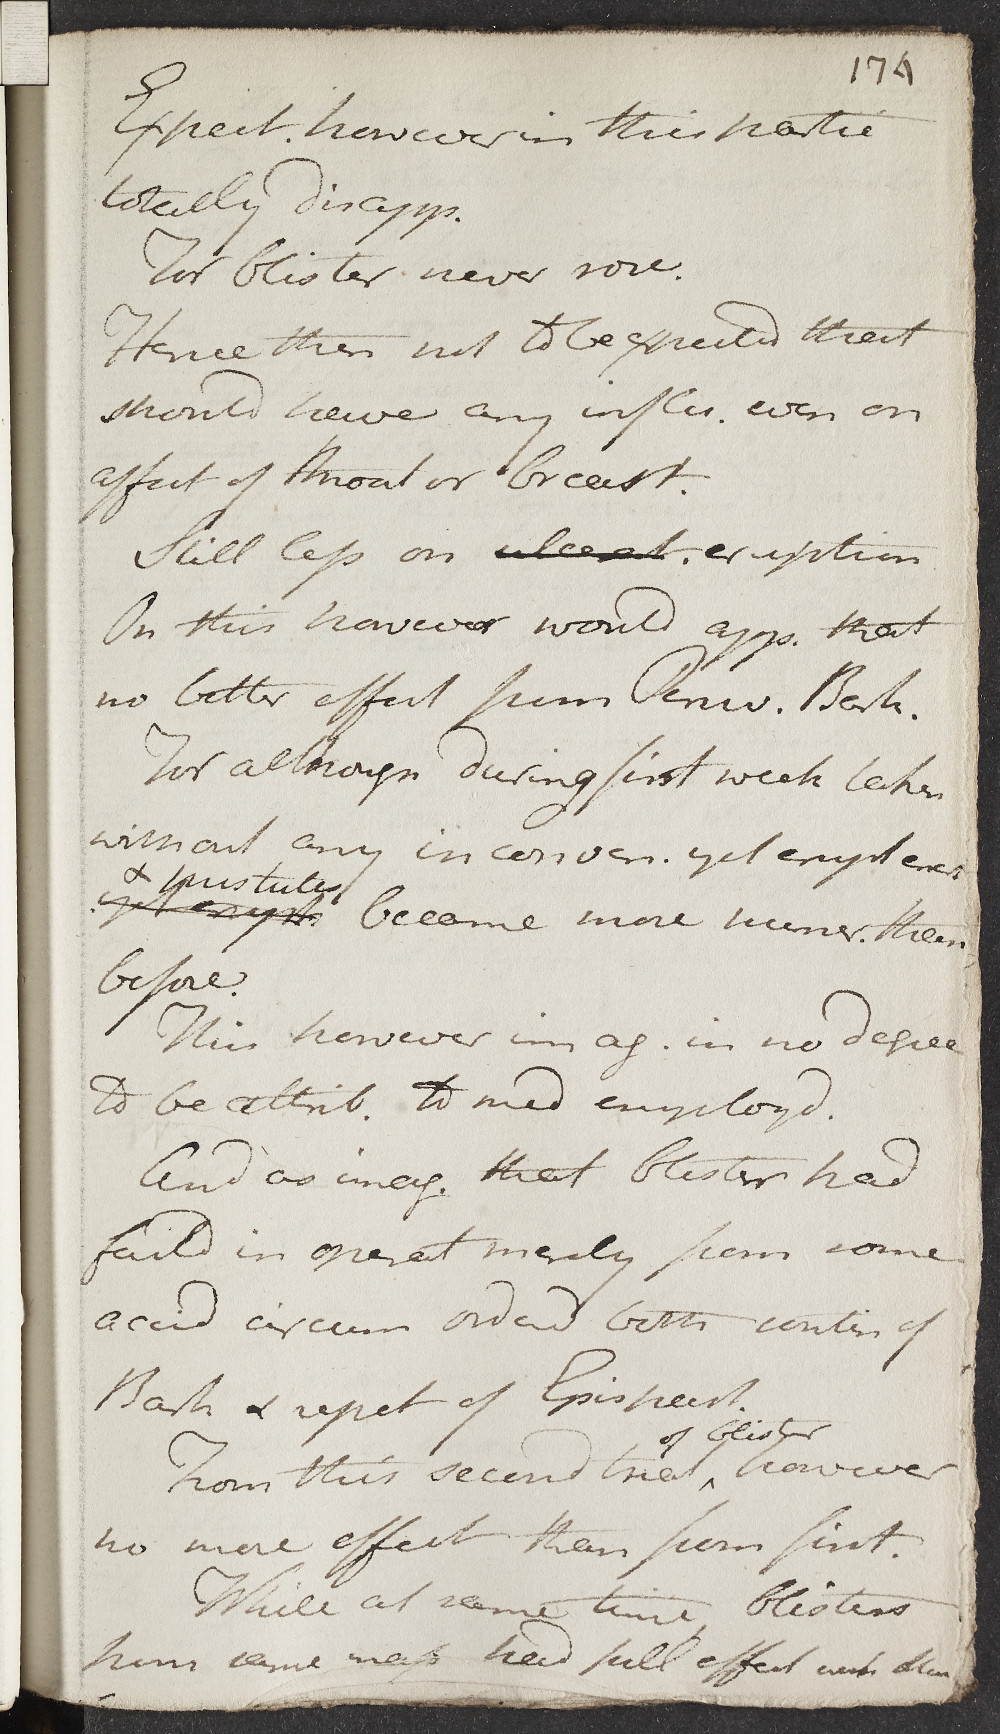 174
Expect. however in this partic
totally disapp.
For blister never rose.
Hence then not to be expected that
should have any influ. even on
affect of throat or breast.
Still less on ulcerat. eruption
On this however would app. that
no better effect from Peruv. Bark.
For although during first week taken
without any inconven. yet erupt
& pustules
yet erupt. became more numer. than
before.
This however imag. in no degree
to be attrib. to med employd.
And as imag. that blister had
faild in operat merely from some
accid circum orderd both contin of
Bark & repet of Epispast.
of blister
From this second trial ‸ however
no more effect than from first.
While at same time, blisters
from same mass had full effect with